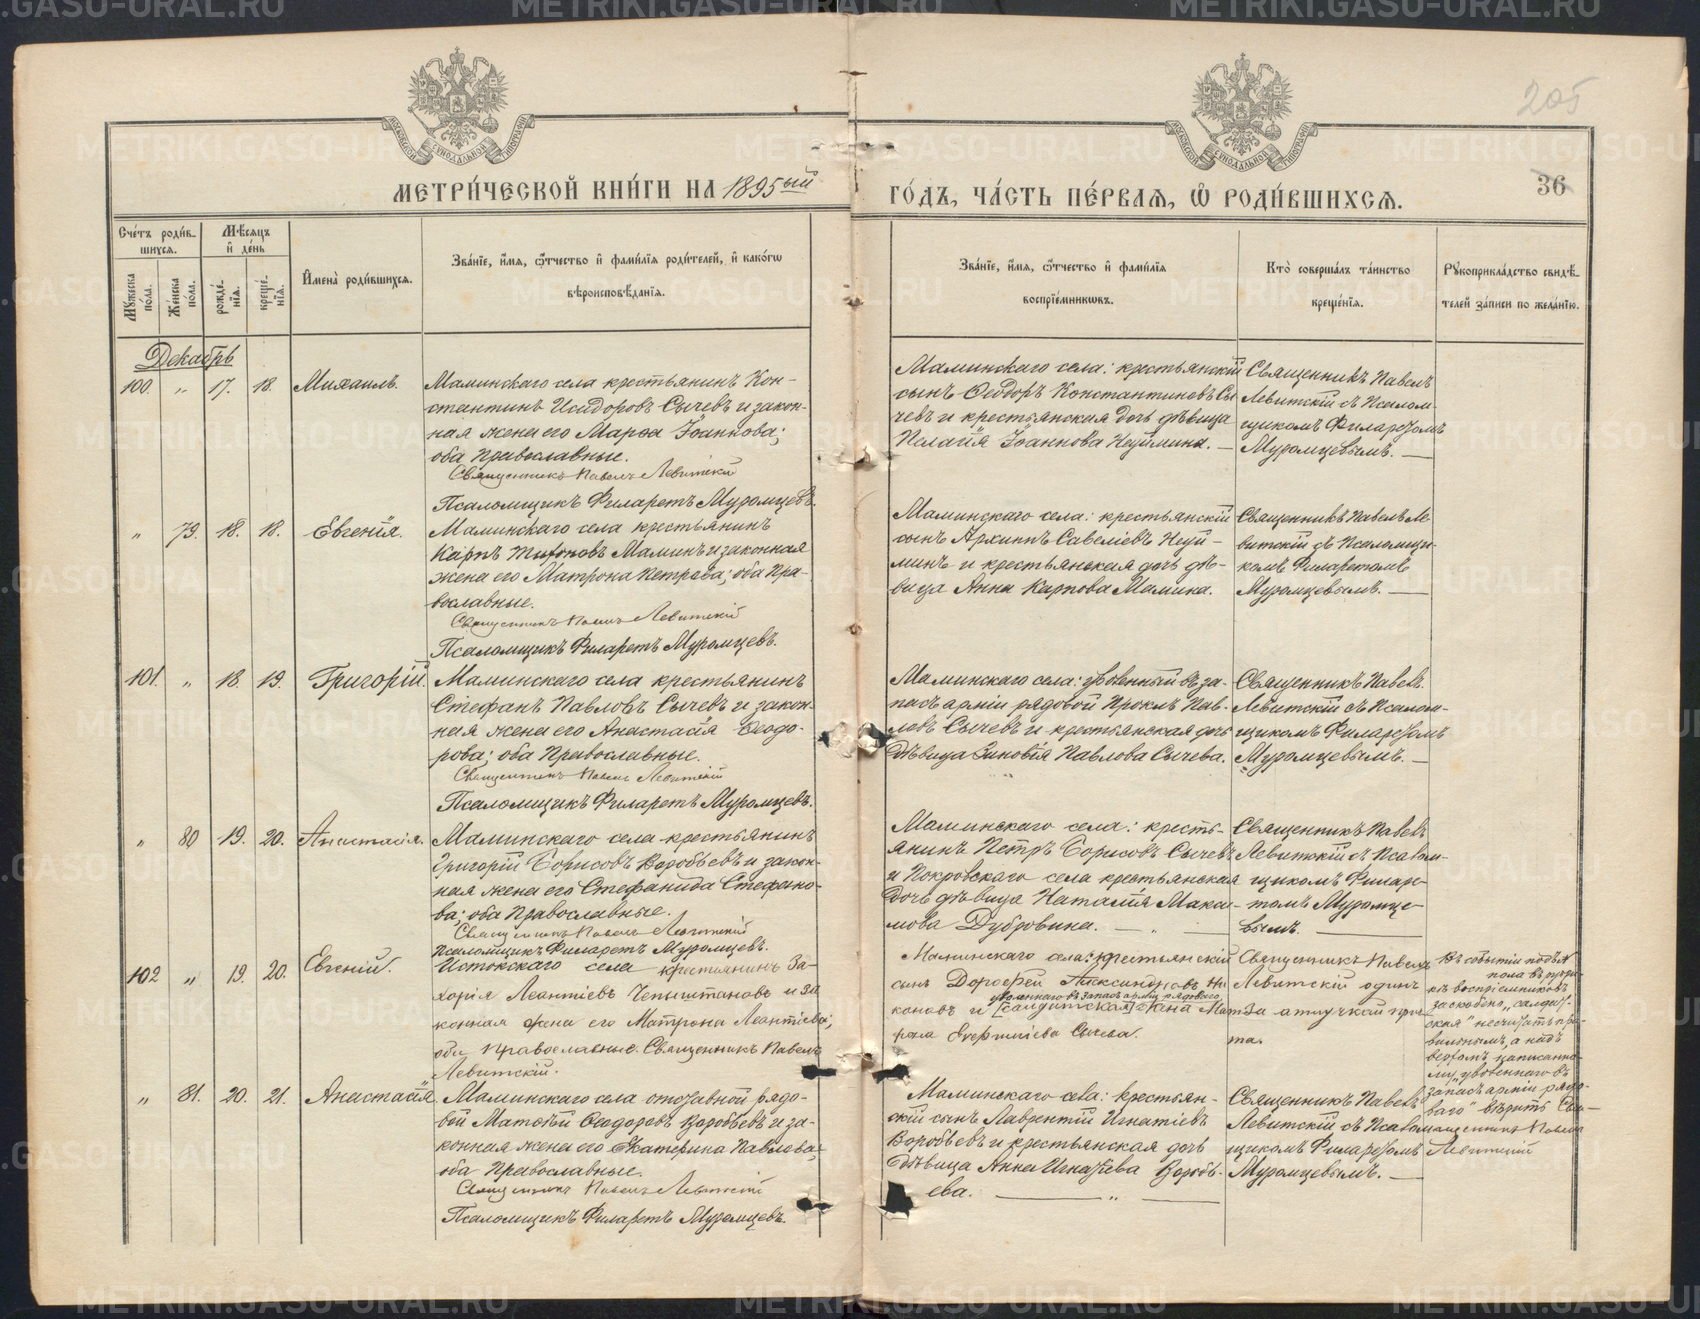 205
36
МЕТРИ́ЧЕСКОЙ КНИ́ГИ НА 1895ый
ГО́ДЪ, ЧА́СТЬ ПЕ́РВАѦ, Ѿ РОДИ́ВШИХСѦ.
Сче́тъ роди́в-
шихся.
Мѣ́сяцъ
и҆ де́нь
И҆мена̀ роди́вшихся.
Зва́нїе, и҆́мя, ѻ҆́тчество и҆ фами́лїя роди́телей, и҆ како́гѡ
вѣроисповѣ́данїя.
Му́жеска
по́ла.
Же́нска
по́ла.
рожде́-
нїя.
креще́-
нїя.
Зва́нїе, и҆́мя, ѻ҆́тчество и҆ фами́лїя
воспрїе́мниковъ.
Кто̀ соверша́лъ та́инство
креще́нїя.
Рꙋкоприкла́дство свидѣ́-
телей за́писи по жела́нїю.
Декабрь
100. „ 17. 18. Михаилъ.
Маминскаго села крестьянинъ Кон-
стантинъ Исидоровъ Сычевъ и закон-
ная жена его Марѳа Іоаннова;
оба Православные.
Священникъ Павелъ Левитскій
Псаломщикъ Филаретъ Муромцевъ.
Маминскаго села: крестьянскій
сынъ Ѳеодоръ Константиновъ Сы
чевъ и крестьянская дочь дѣвица
Пелагія Іоаннова Неуймина. —
Священникъ Павелъ
Левитскій съ Псалом-
щикомъ Филаретомъ
Муромцевымъ. —
„ 79. 18. 18. Евгенія.
Маминскаго села крестьянинъ
Карпъ Тихоновъ Маминъ и законная
жена его Матрона Петрова; оба Пра-
вославные.
Священникъ Павелъ Левитскій
Псаломщикъ Филаретъ Муромцевъ.
Маминскаго села: крестьянскій
сынъ Архиппъ Савеліевъ Неуй-
минъ и крестьянская дочь дѣ-
вица Анна Карпова Мамина.
Священникъ Павелъ Ле
витскій съ Псаломщи-
комъ Филаретомъ
Муромцевымъ. —
101. „ 18. 19. Григорій.
Маминскаго села крестьянинъ
Стефанъ Павловъ Сычевъ и закон-
ная жена его Анастасія Ѳеодо-
рова; оба Православные.
Священникъ Павелъ Левитскій
Псаломщикъ Филаретъ Муромцевъ.
Маминскаго села: уволенный въ за-
пасъ арміи рядовой Проклъ Пав-
ловъ Сычевъ и крестьянская дочь
дѣвица Зиновія Павлова Сычева.
Священникъ Павелъ
Левитскій съ Псалом-
щикомъ Филаретомъ
Муромцевымъ. —
„ 80 19. 20. Анастасія.
Маминскаго села крестьянинъ
Григорій Борисовъ Воробьевъ и закон-
ная жена его Стефанида Стефано-
ва; оба Православные.
Священникъ Павелъ Левитскій
Псаломщикъ Филаретъ Муромцевъ.
Маминскаго села: кресть-
янинъ Петръ Борисовъ Сычевъ
и Покровскаго села крестьянская
дочь дѣвица Наталія Макси-
мова Дубровина. — „ —
Священникъ Павелъ
Левитскій съ Псалом-
щикомъ Филаре-
томъ Муромце-
вымъ. —
102 „ 19. 20. Евгеній.
Истокскаго села крестьянинъ За-
харія Леонтіевъ Чепыштановъ и за
конная жена его Матрона Леонтіева;
оба Православные. Священникъ Павелъ
Левитскій.
Маминскаго села: крестьянскій
сынъ Дороѳей Александровъ Ни
уволеннаго въ запасъ арміи рядоваго
коновъ и [солдатская] жена Мат
рона Евфиміева Сычева.
Священникъ Павелъ
Левитскій одинъ
за отлучкой прич
та.
Въ событіи подъ №
пола въ гра-
фѣ воспріемниковъ
заскоблен. „солдат-
ская" несчитать пра-
вильнымъ, а надъ
верхомъ написанно-
му „уволеннаго въ
запасъ арміи рядо-
ваго" вѣрить Свя-
щенникъ Павелъ
Левитскій
„ 81. 20. 21. Анастасія.
Маминскаго села отставной рядо-
вой Матѳей Ѳеодоровъ Воробьевъ и за-
конная жена его Екатерина Павлова;
оба Православные.
Священникъ Павелъ Левитскій
Псаломщикъ Филаретъ Муромцевъ.
Маминскаго села: крестьян-
скій сынъ Лаврентій Игнатіевъ
Воробьевъ и крестьянская дочь
дѣвица Анна Игнатіева Воробь-
ева. — „ —
Священникъ Павелъ
Левитскій съ Псалом
щикомъ Филаретомъ
Муромцевымъ. —
METRIKI.GASO-URAL.RU